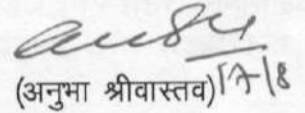 (अनुभा श्रीवास्तव) 17/8